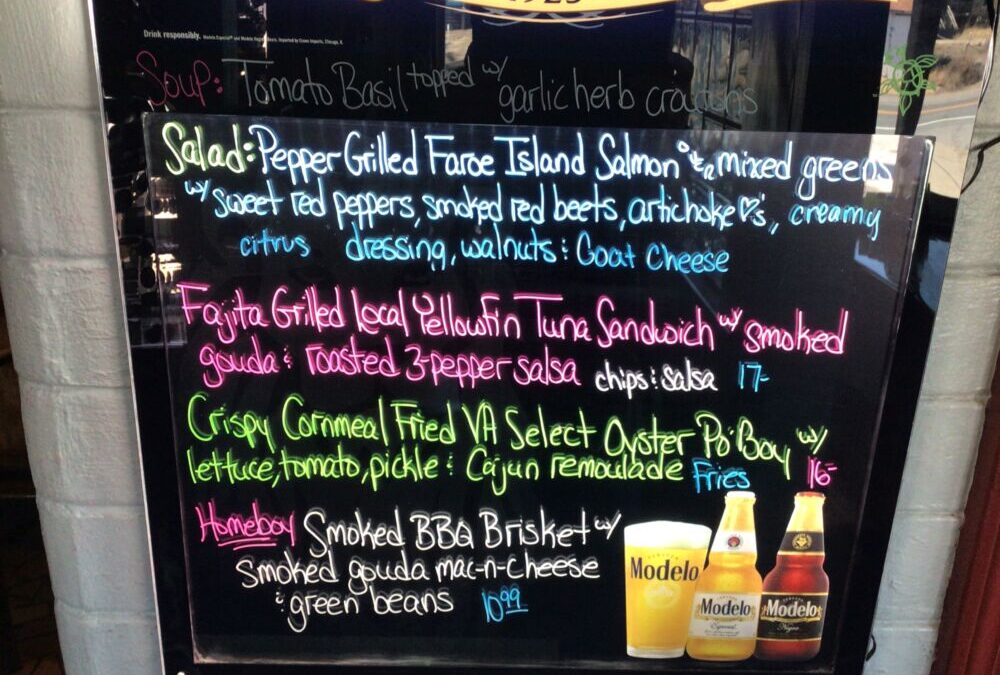 1925
Drink responsibly.
Soup: Tomato Basil topped w/ garlic herb croutons
Salad: Pepper Grilled Faroe Island Salmon mixed greens
w/ sweet red peppers, smoked red beets, artichoke ♡'s, creamy
citrus dressing, walnuts & Goat Cheese
Fajita Grilled Local Yellowfin Tuna Sandwich w/ smoked
gouda & roasted 3-pepper salsa chips & salsa 17-
Crispy Cornmeal Fried VA Select Oyster Po'Boy w/
lettuce, tomato, pickle & Cajun remoulade Fries 16-
Homeboy Smoked BBQ Brisket w/
smoked gouda mac-n-cheese
& green beans 10.99
Modelo
Modelo
Especial
Modelo
Negra